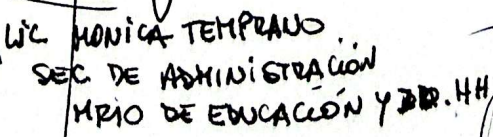 LIC MONICA TEMPRANO.
SEC. DE ADMINISTRACIÓN
MRIO DE EDUCACIÓN Y DD.HH